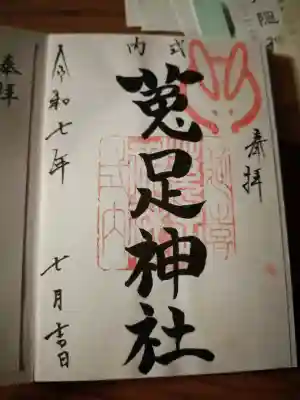 奉拝
式内
菟足神社
令和七年
七月吉日
奉拝